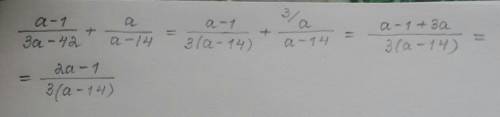 (a-1)/(3a-42) + a/(a-14) = (a-1)/(3(a-14)) + ³⁄a/(a-14) = (a-1+3a)/(3(a-14)) =
= (2a-1)/(3(a-14))